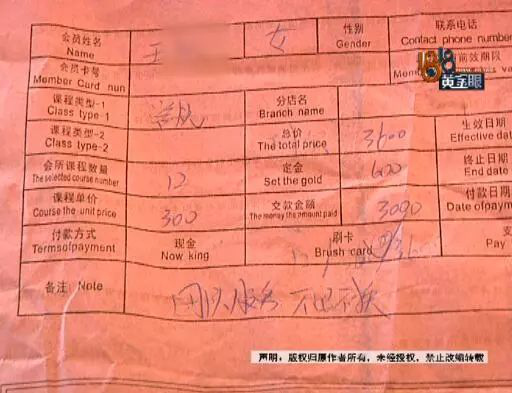 会员姓名 王 女 性别 联系电话
Name Gender Contact phone number
会员卡号 有效期限
Member Card num Mem s va
1818黄金眼
课程类型-1 常规 分店名
Class type-1 Branch name
课程类型-2 总价 3600 生效日期
Class type-2 The total price Effective dat
会所课程数量 12 定金 600 终止日期
The selected course number Set the gold End date
课程单价 300 交款金额 3000 付款日期
Course the unit price The money the amount paid Date ofpaym
付款方式 现金 刷卡 支
Termsofpayment Now king Brush card Pay
备注 Note 团队服务 不退不换
声明：版权归原作者所有，未经授权，禁止改编转载